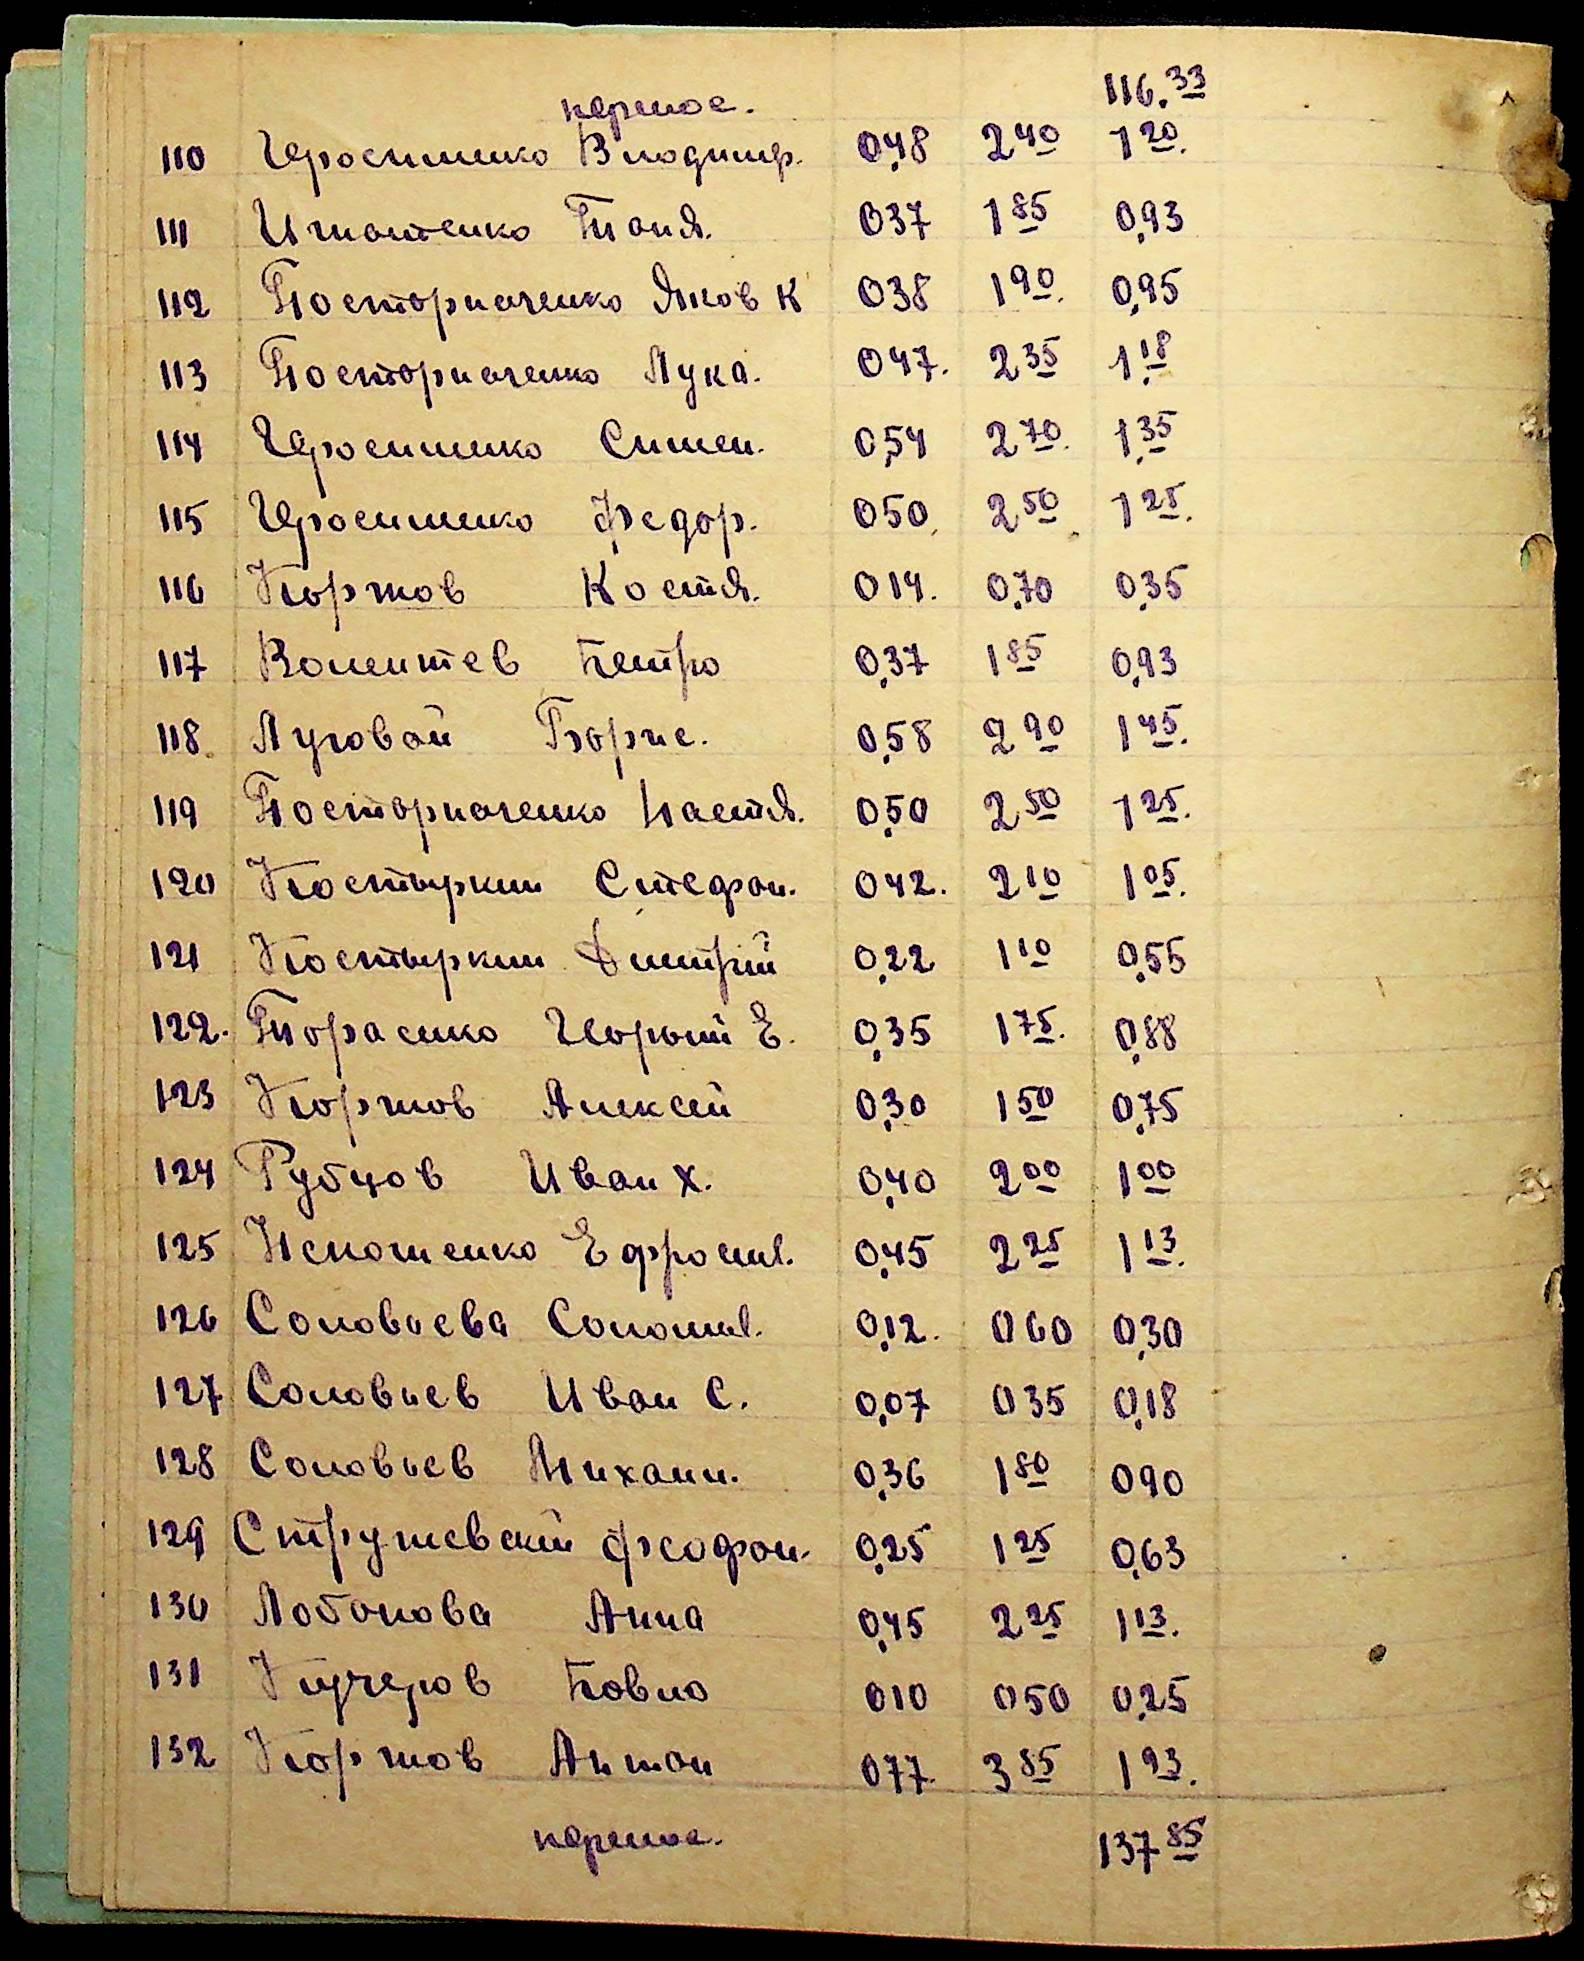 перенос. 116.33
110 Герасименко Владимир. 0,48 2 40 1 20.
111 Игнатенко Таня. 037 1 85 0,93
112 Пастерначенко Яков К 038 1 90. 0,95
113 Пастерначенко Лука. 047. 2 35 1.18
114 Герасименко Симен. 0,54 2 70. 1.35
115 Герасименко Федор. 050. 2 50 1 25.
116 Коржов Костя. 014. 0,70 0,35
117 Петро 0,37 1 85 0,93
118. Луговой Борис. 0,58 2 90 1 45.
119 Пастерначенко Настя. 0,50 2 50 1 25.
120 Костыркин Стефан. 042. 2 10 1 05.
121 Костыркин Дмитрий 0,22 1 10 0,55
122. Тарасенко Е. 0,35 1 75. 0,88
123 Коржов Алексей 0,30 1 50 0,75
124 Рубцов Иван Х. 0,40 2 00 1 00
125 Ефросин. 0,45 2 25 1 13.
126 Соловьева Соломон. 0,12. 060 0,30
127 Соловьев Иван С. 0,07 035 0,18
128 Соловьев Михаил. 0,36 1 80 090
129 Стружевский Феофан. 0,25 1 25 0,63
130 Лобанова Анна 0,45 2 25 1 13.
131 Кучеров Павло 010 050 0,25
132 Коржов Антон 077. 3 85 1 93.
перенос. 137 85